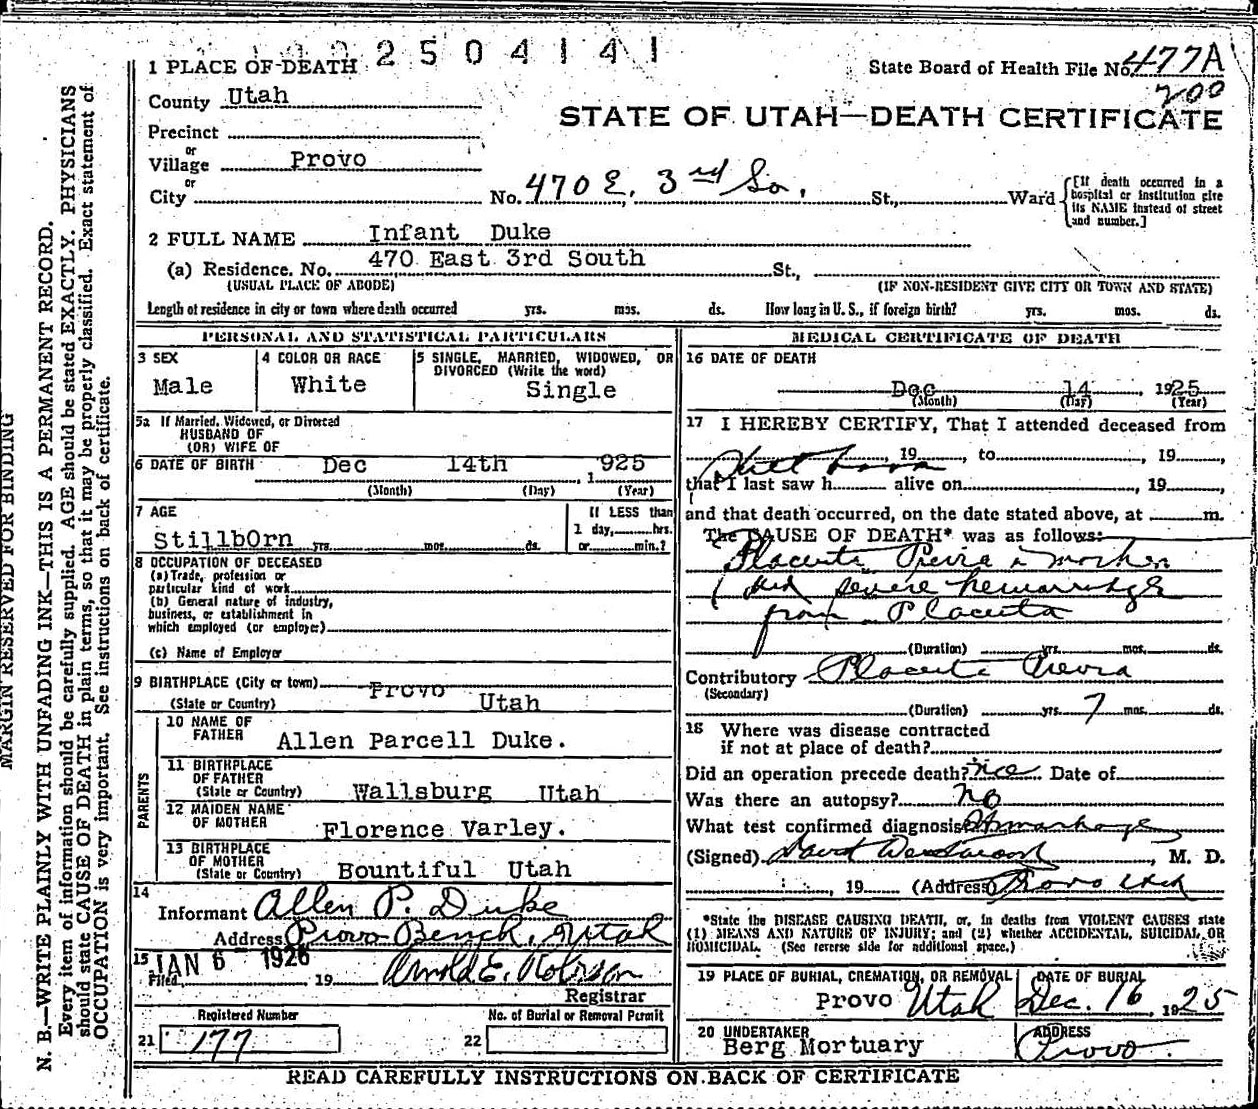 2504141
1 PLACE OF DEATH
State Board of Health File No. 477A
200
County Utah
STATE OF UTAH—DEATH CERTIFICATE
Precinct
or
Village Provo
or
City
No. 470 E. 3rd So. St., Ward
[If death occurred in a hospital or institution give its NAME instead of street and number.]
2 FULL NAME Infant Duke
(a) Residence. No. 470 East 3rd South St.,
(USUAL PLACE OF ABODE) (IF NON-RESIDENT GIVE CITY OR TOWN AND STATE)
Length of residence in city or town where death occurred yrs. mos. ds. How long in U. S., if foreign birth? yrs. mos. ds.
PERSONAL AND STATISTICAL PARTICULARS
3 SEX
Male
4 COLOR OR RACE
White
5 SINGLE, MARRIED, WIDOWED, OR DIVORCED (Write the word)
Single
5a If Married, Widowed, or Divorced
HUSBAND OF
(OR) WIFE OF
6 DATE OF BIRTH Dec 14th, 1925
(Month) (Day) (Year)
7 AGE
Stillb0rn yrs. mos. ds.
If LESS than
1 day, hrs.
or min.?
8 OCCUPATION OF DECEASED
(a) Trade, profession or
particular kind of work
(b) General nature of industry,
business, or establishment in
which employed (or employer)
(c) Name of Employer
9 BIRTHPLACE (City or town) Provo
(State or Country) Utah
PARENTS
10 NAME OF
FATHER Allen Parcell Duke.
11 BIRTHPLACE
OF FATHER
(State or Country) Wallsburg Utah
12 MAIDEN NAME
OF MOTHER Florence Varley.
13 BIRTHPLACE
OF MOTHER
(State or Country) Bountiful Utah
14
Informant Allen P. Duke
Address Provo Bench, Utah
15 JAN 6 1926
Filed 19 Arnold E. Robison
Registrar
Registered Number
21 177
No. of Burial or Removal Permit
22
MEDICAL CERTIFICATE OF DEATH
16 DATE OF DEATH
Dec 14 1925
(Month) (Day) (Year)
17 I HEREBY CERTIFY, That I attended deceased from
Still born, 19, to, 19,
that I last saw h alive on, 19,
and that death occurred, on the date stated above, at m.
The CAUSE OF DEATH* was as follows:
Placenta Previa in mother
had severe hemorrhage
from Placenta
(Duration) yrs. mos. ds.
Contributory Placenta Previa
(Secondary)
(Duration) yrs. 7 mos. ds.
18 Where was disease contracted
if not at place of death?
Did an operation precede death? Date of
Was there an autopsy? no
What test confirmed diagnosis Hemorrhage
(Signed) David Westwood, M. D.
, 19 (Address) Provo Utah
*State the DISEASE CAUSING DEATH, or, in deaths from VIOLENT CAUSES state
(1) MEANS AND NATURE OF INJURY; and (2) whether ACCIDENTAL, SUICIDAL, OR
HOMICIDAL. (See reverse side for additional space.)
19 PLACE OF BURIAL, CREMATION, OR REMOVAL
Provo Utah
DATE OF BURIAL
Dec. 16, 1925
20 UNDERTAKER
Berg Mortuary
ADDRESS
Provo.
READ CAREFULLY INSTRUCTIONS ON BACK OF CERTIFICATE
MARGIN RESERVED FOR BINDING
N. B.—WRITE PLAINLY WITH UNFADING INK—THIS IS A PERMANENT RECORD.
Every item of information should be carefully supplied. AGE should be stated EXACTLY. PHYSICIANS
should state CAUSE OF DEATH in plain terms, so that it may be properly classified. Exact statement of
OCCUPATION is very important. See instructions on back of certificate.